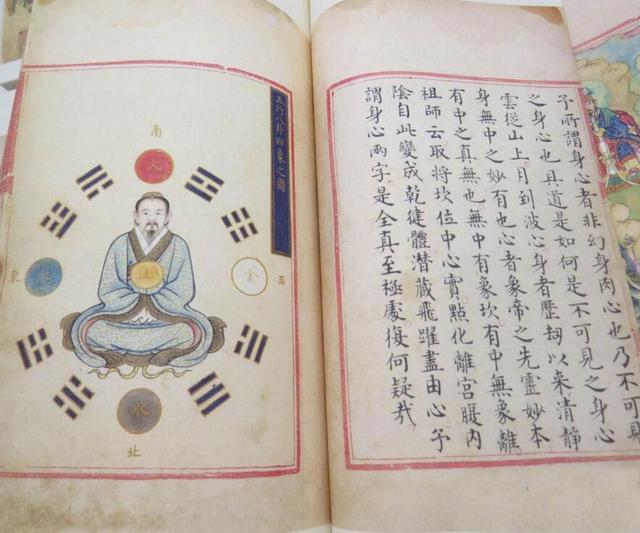 予所謂身心者非幻身肉心也乃不可見
之身心也且道是如何是不可見之身心
雲從山上月到波心身者歷劫以來清靜
身無中之妙有也心者象帝之先靈妙本
有中之真無也無中有象坎有中無象離
祖師云取將坎位中心實點化離宮腹內
陰自此變成乾健體潛藏飛躍盡由心予
謂身心兩字是全真至極處復何疑哉
五行八卦四象之圖
南
火
西
金
土
東
水
北